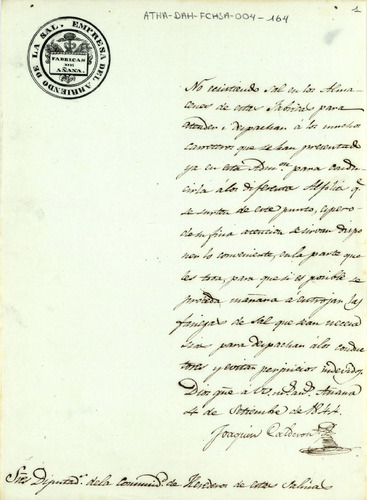 ATHA-DAH-FCHSA-004-164
1
EMPRESA DEL ARRIENDO DE LA SAL.
FABRICAS
DE
AÑANA.
No existiendo Sal en los Alma
cenes de estas Fabricas para
atender y despachar á los muchos
carreteros que se han presentado
ya en esta Admon para condu
cirla á los diferentes Alfolies q.
se surten de este punto, espero
de su fina atencion se sirvan dispo
ner lo conveniente, en la parte que
les toca, para que si es posible se
proceda mañana á entrojar las
fanegas de Sal que sean necesa
rias para despachar á los conduc
tores y evitar perjuicios indevidos.
Dios gue. á VS. ms. an. Añana
4 de Setiembre de 1844.
Joaquin Calderon
Sres. Diputads. de la comunidd. de Herederos de estas Salinas